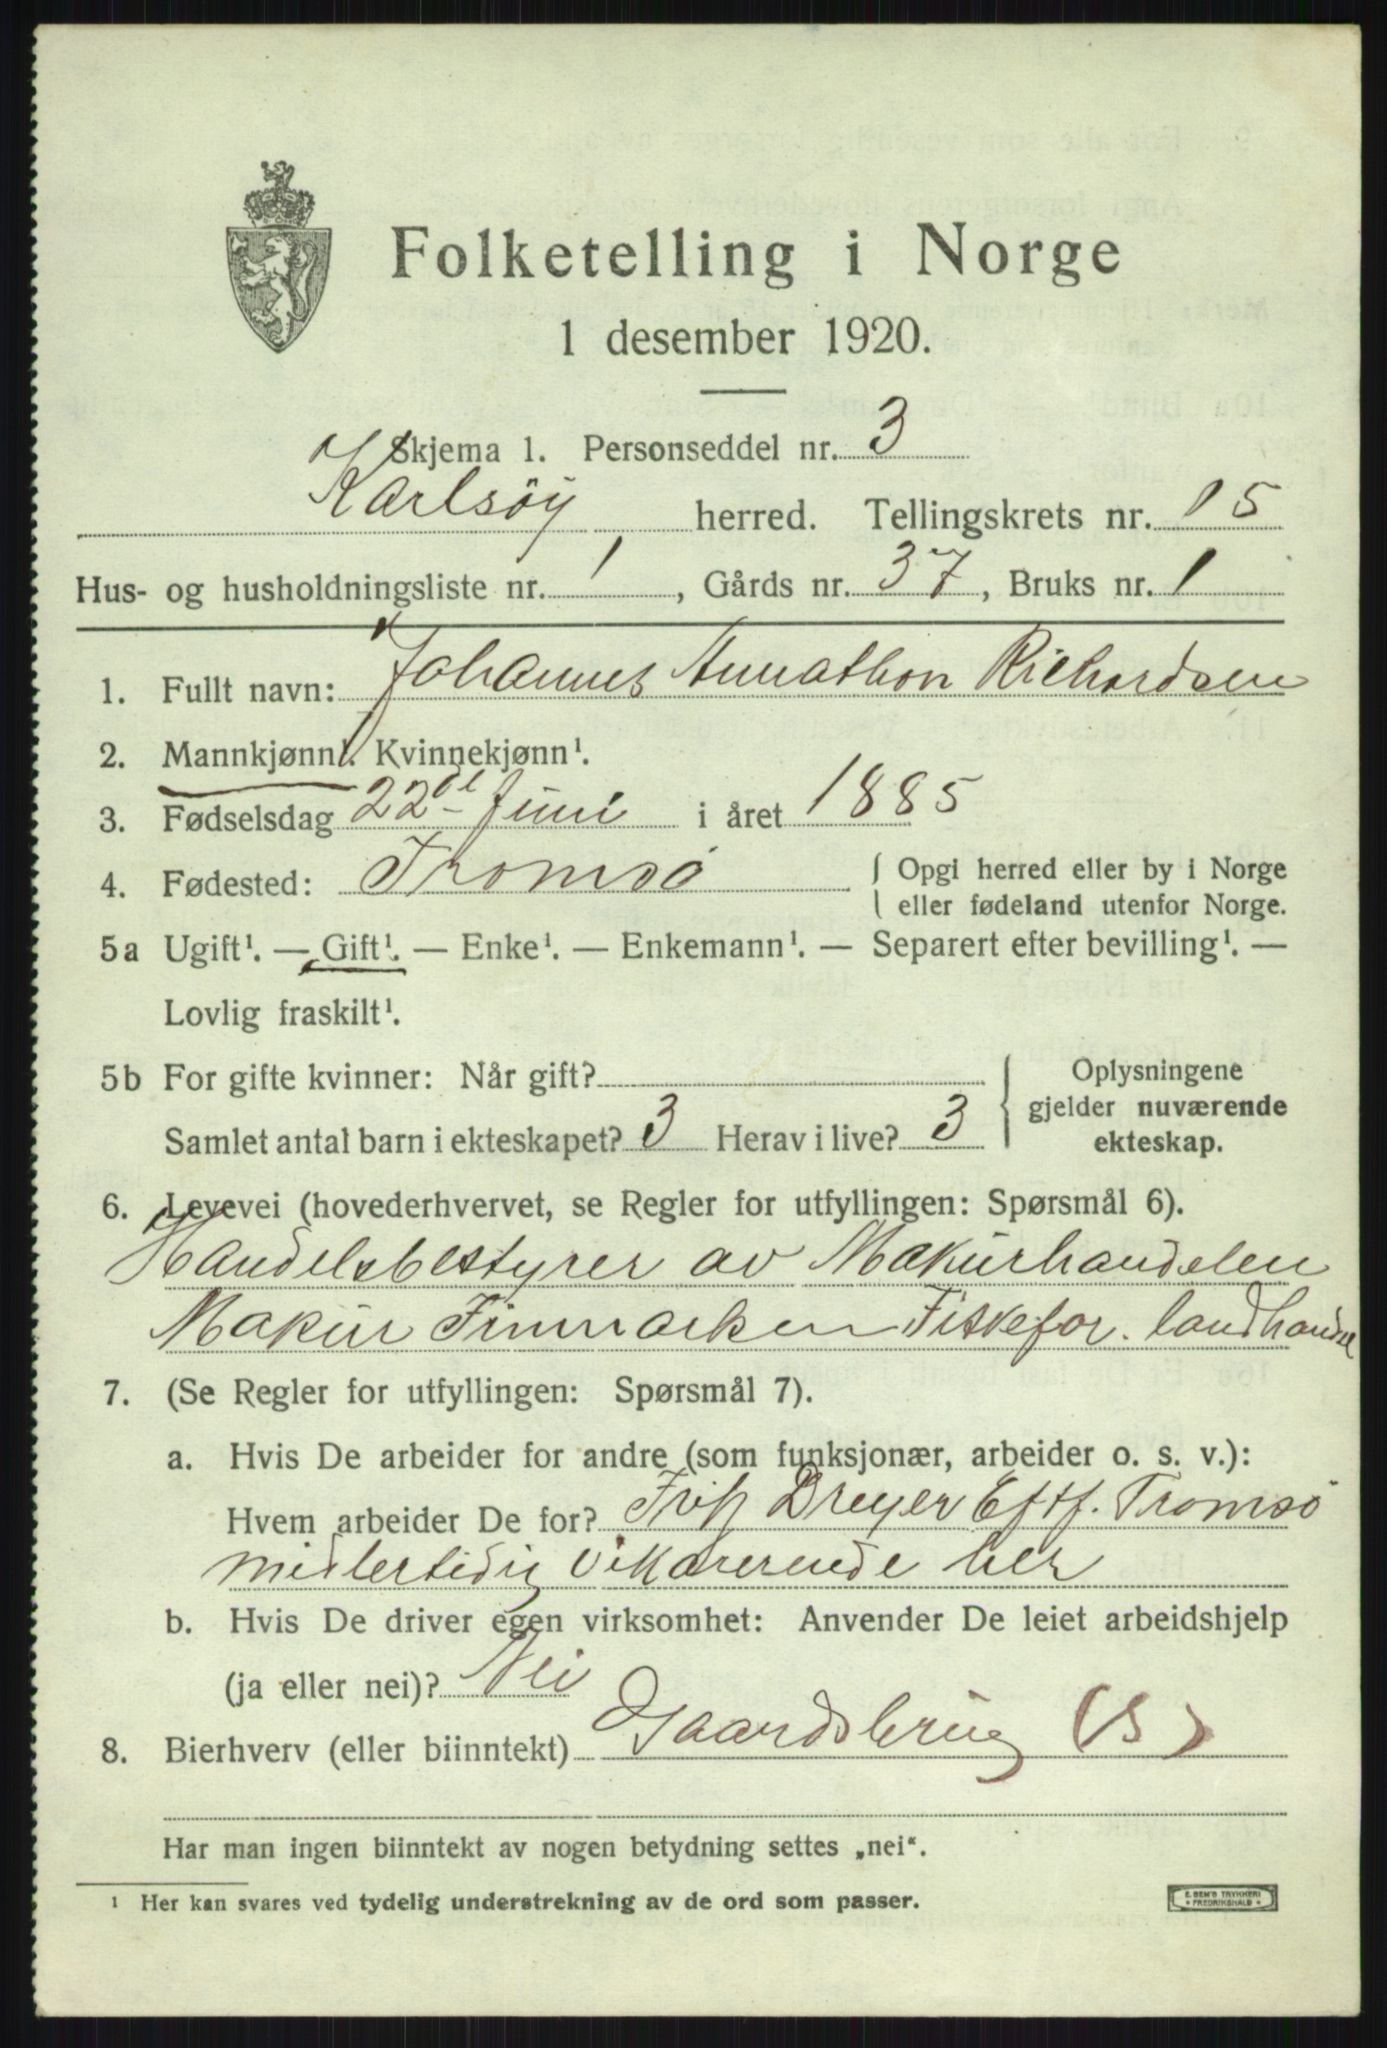 Folketelling i Norge
1 desember 1920.
Skjema 1. Personseddel nr. 3
Karlsöy herred. Tellingskrets nr. 15
Hus- og husholdningsliste nr. 1, Gårds nr. 37, Bruks nr. 1
1. Fullt navn: Johannes Annathon Richardsen
2. Mannkjønn¹. Kvinnekjønn¹.
3. Fødselsdag 22de Juni i året 1885
4. Fødested: Tromsö { Opgi herred eller by i Norge
eller fødeland utenfor Norge.
5a Ugift¹. — Gift¹. — Enke¹. — Enkemann¹. — Separert efter bevilling¹. —
Lovlig fraskilt¹.
5b For gifte kvinner: Når gift?
Samlet antal barn i ekteskapet? 3 Herav i live? 3
Oplysningene
gjelder nuværende
ekteskap.
6. Levevei (hovederhvervet, se Regler for utfyllingen: Spørsmål 6).
Handelsbestyrer av Makurhandelen
Makur Finmarken Fiskefor. landhandel
7. (Se Regler for utfyllingen: Spørsmål 7).
a. Hvis De arbeider for andre (som funksjonær, arbeider o. s. v.):
Hvem arbeider De for? Dreyer Eftf. Tromsö
midlertidig vikarerende her
b. Hvis De driver egen virksomhet: Anvender De leiet arbeidshjelp
(ja eller nei)? Nei
8. Bierhverv (eller biinntekt) Gaardsbrug (S)
Har man ingen biinntekt av nogen betydning settes „nei“.
¹ Her kan svares ved tydelig understrekning av de ord som passer.
E. SEM'S TRYKKERI
FREDRIKSHALD